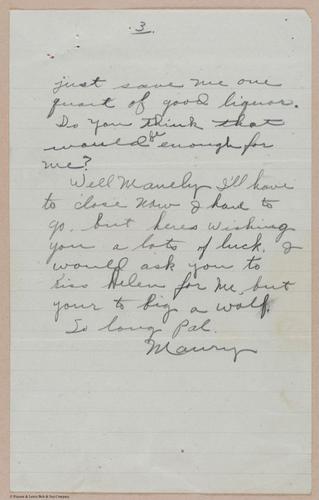 3.
just save me one
quart of good liquor.
Do you think that
would be enough for
me?
Well Manely I'll have
to close now I have to
go. but heres wishing
you a lots of luck. I
would ask you to
kiss Helen for me, but
your to big a wolf.
So long Pal.
Maury